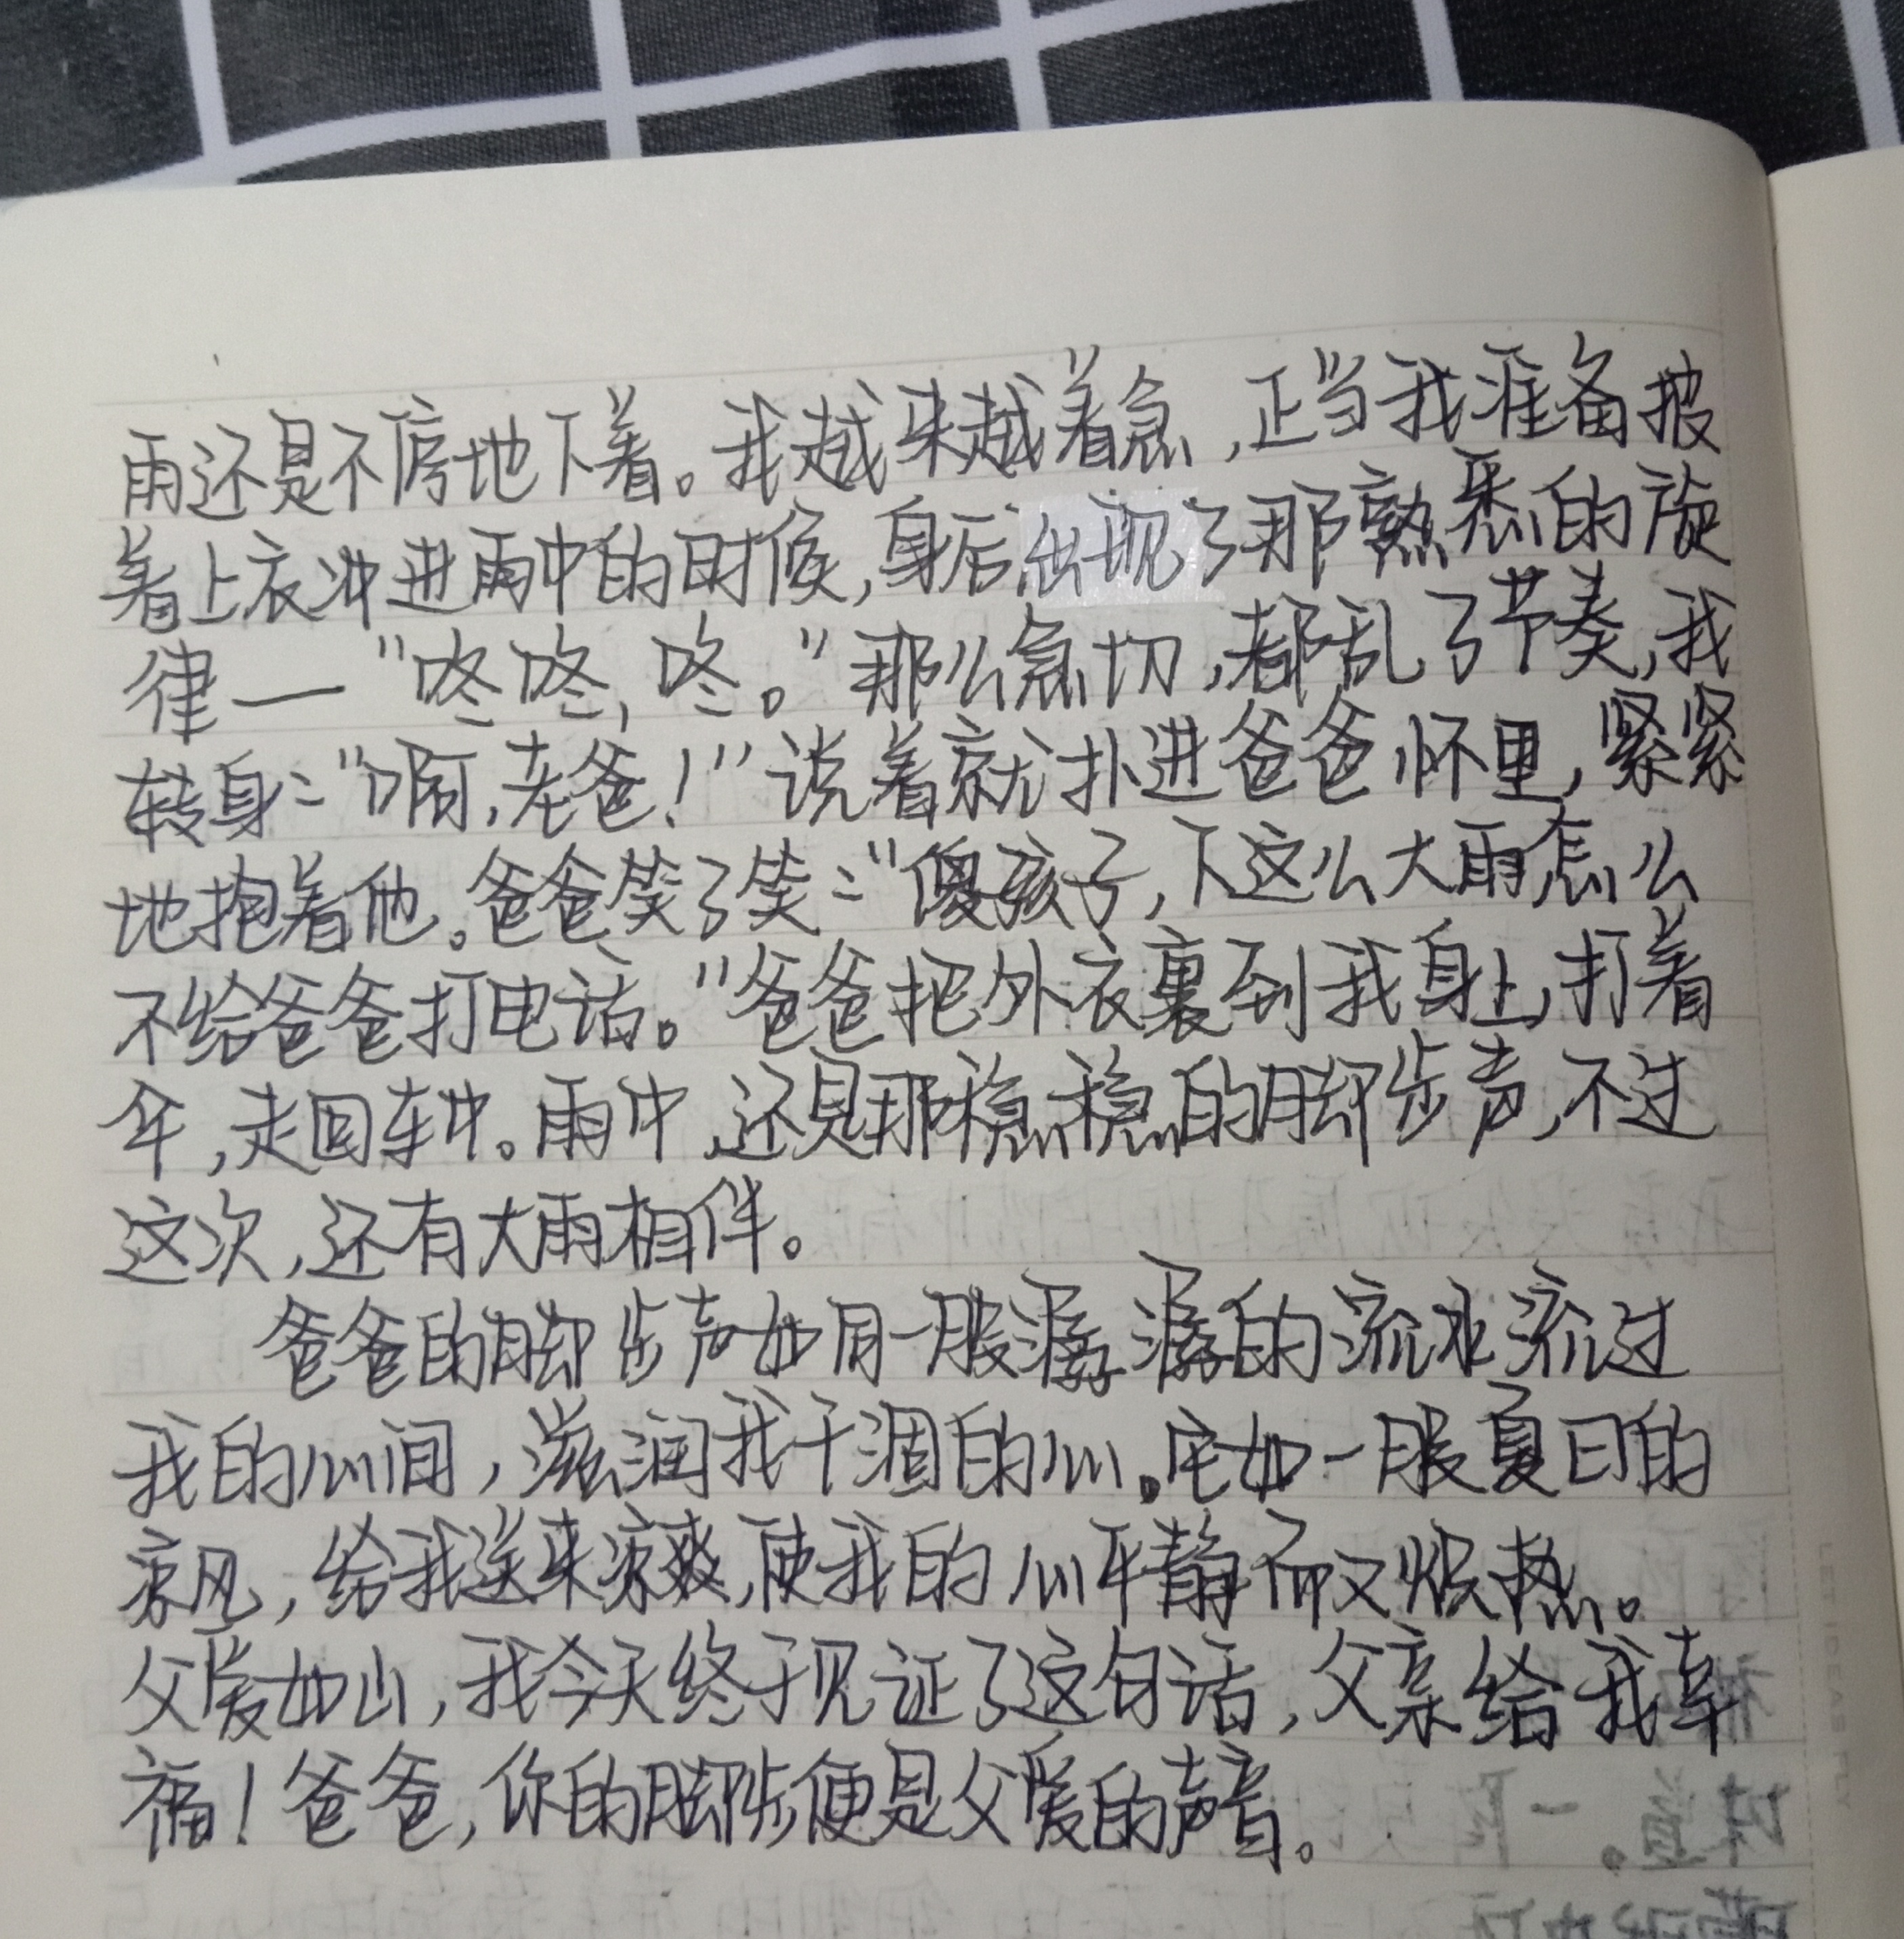 雨还是不停地下着。我越来越着急，正当我准备披
着上衣冲进雨中的时候，身后出现了那熟悉的旋
律—"咚咚，咚。"那么急切，都乱了节奏，我
转身："啊，老爸！"说着就扑进爸爸怀里，紧紧
地抱着他。爸爸笑了笑："傻孩子，下这么大雨怎么
不给爸爸打电话。"爸爸把外衣裹到我身上，打着
伞，走回车中。雨中，还是那稳稳的脚步声，不过
这次，还有大雨相伴。
爸爸的脚步声如同一股潺潺的流水流过
我的心间，滋润我干涸的心。它如一股夏日的
凉风，给我送来凉爽，使我的心平静而又炽热。
父爱如山，我今天终于见证了这句话，父亲给我幸
福！爸爸，你的脚步便是父爱的声音。